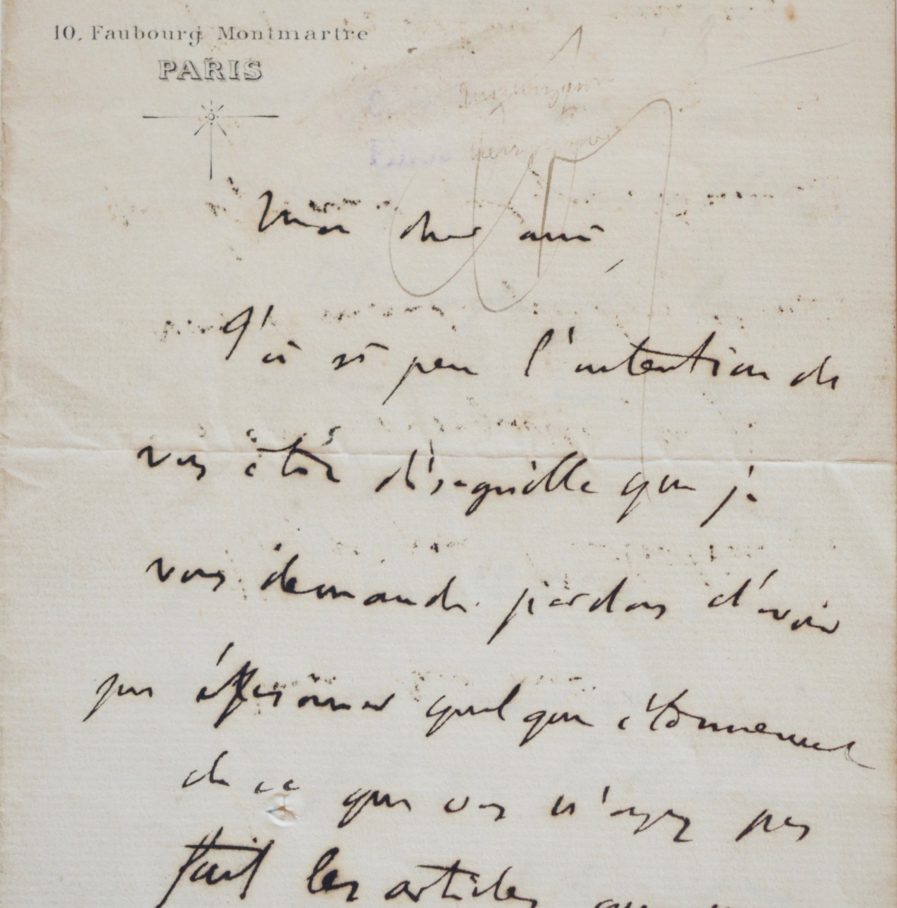 10, Faubourg Montmartre
PARIS
Mon cher ami,
J'ai si peu l'intention de
vous être désagréable que je
vous demande pardon d'avoir
pu éprouver quelque étonnement
de ce que vous n'ayez pas
fait les articles que